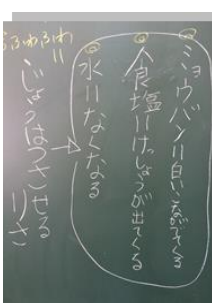 ミョウバン=白いこながでてくる
食塩=けっしょうが出てくる
水=なくなる
→じょうはつさせる